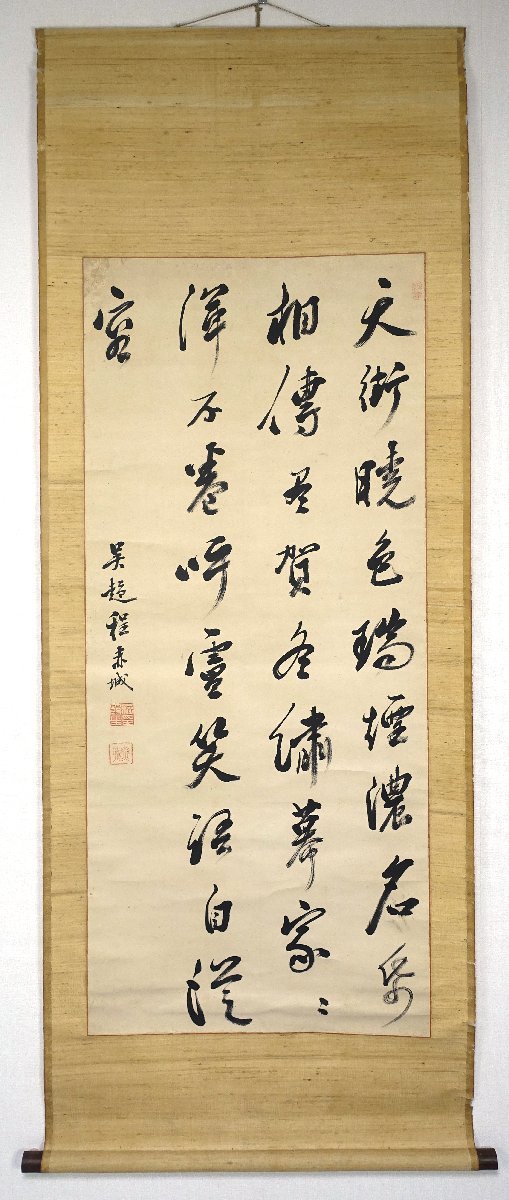 天街曉色瑞煙濃名帋
相傳尽賀冬繡幕家〻
渾不卷呼盧笑語自從
容
吳趨程赤城